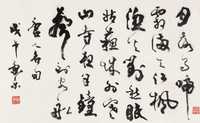 月落烏啼
霜滿天江楓
漁火對愁眠
姑蘇城外寒
山寺夜半鐘
聲到客船
唐人句
戊午